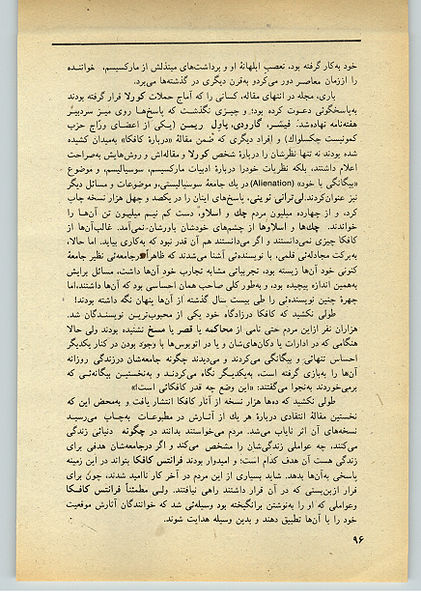 خود به‌کار گرفته بود، تعصب ابلهانهٔ او و برداشت‌های مبتذلش از مارکسیسم، خواننده
را از زمان معاصر دور می‌کرد و به‌قرن دیگری در گذشته‌ها می‌برد.
باری، مجله در انتهای مقاله، کسانی را که آماج حملات کورلا قرار گرفته بودند
به‌پاسخگوئی دعوت کرده بود؛ و چیزی نگذشت که پاسخ‌ها روی میز سردبیر
هفته‌نامه نهاده‌شد. فیشر، گارودی، پاول ریمن (یکی از اعضای رزاح حزب
کمونیست چکسلواک) و افراد دیگری که ضمن مقالهٔ «دربارهٔ کافکا» به‌میدان کشیده
شده بودند نه تنها نظرشان را دربارهٔ شخص کورلا و مقاله‌اش و روش‌هایش به‌صراحت
اعلام داشتند، بلکه نظریات خودرا دربارهٔ ادبیات مارکسیسم، سوسیالیسم، و موضوع
«بیگانگی با خود» (Alienation) در یك جامعهٔ سوسیالیستی، و موضوعات و مسائل دیگر
نیز عنوان‌کردند. لی‌ترانی نوینی، پاسخ‌های اینان را در یکصد و چهل هزار نسخه چاپ
کرد، و از چهارده میلیون مردم چك و اسلاو، دست کم نیم میلیون تن آن‌ها را
خواندند. چك‌ها و اسلاوها از چشم‌های خودشان باورشان‌نمی‌آمد. غالب‌آن‌ها از
کافکا چیزی نمی‌دانستند و اگر می‌دانستند هم آن قدر نبود که به‌کاری بیاید. اما حالا،
به‌برکت مجادله‌ئی قلمی، با نویسنده‌ئی آشنا می‌شدند که ظاهراً درجامعه‌ئی نظیر جامعهٔ
کنونی خود آن‌ها زیسته بود، تجربیاتی مشابه تجارب خود آن‌ها داشت، مسائل برایش
به‌همین اندازه پیچیده بود، و به‌طور کلی صاحب همان احساسی بود که آن‌ها داشتند، اما
چهرهٔ چنین نویسنده‌ئی را طی بیست سال گذشته از آن‌ها پنهان نگه داشته بودند!
طولی نکشید که کافکا درزادگاه خود یکی از محبوب‌ترین نویسندگان شد.
هزاران نفر ازاین مردم حتی نامی از محاکمه یا قصر یا مسخ نشنیده بودند ولی حالا
هنگامی که در ادارات یا دکان‌های‌شان و یا در اتوبوس‌ها با وجود بودن در کنار یکدیگر
احساس تنهائی و بیگانگی می‌کردند و می‌دیدند چگونه جامعه‌شان درزندگی روزانه
آن‌ها را به‌بازی گرفته است، به‌یکدیگر نگاه می‌کردند و به‌نخستین بیگانه‌ئی که
برمی‌خوردند به‌نجوا می‌گفتند: «این وضع چه قدر کافکائی است!»
طولی نکشید که ده‌ها هزار نسخه از آثار کافکا انتشار یافت و به‌محض این که
نخستین مقالهٔ انتقادی دربارهٔ هر یك از آثارش در مطبوعات به‌چاپ می‌رسید
نسخه‌های آن اثر نایاب می‌شد. مردم می‌خواستند بدانند در چگونه دنیائی زندگی
می‌کنند، چه عواملی زندگی‌شان را مشخص می‌کند و اگر درجامعه‌شان هدفی برای
زندگی هست آن هدف کدام است؛ و امیدوار بودند فرانتس کافکا بتواند در این زمینه
پاسخی به‌آن‌ها بدهد. شاید بسیاری از این مردم در آخر کار ناامید شدند، چون برای
فرار ازبن‌بستی که در آن قرار داشتند راهی نیافتند. ولی مطمئناً فرانتس کافکا
وعواملی که او را به‌نوشتن برانگیخته بود وسیله‌ئی شد که خوانندگان آثارش موقعیت
خود را با آن‌ها تطبیق دهند و بدین وسیله هدایت شوند.
۹۶